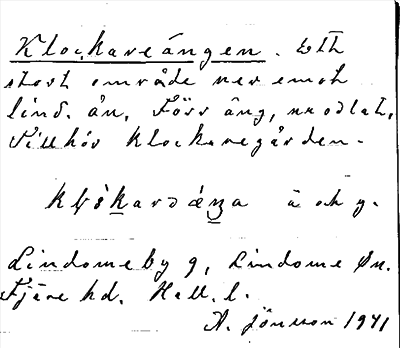 Klockareängen. Ett
stort område ner emot
lind. ån, Förr äng, nu odlat,
Tillhör Klockaregården.
ä och y.
Lindomeby 9, Lindome sn.
Fjäre hd. Hall. l.
A. Jönsson 1941